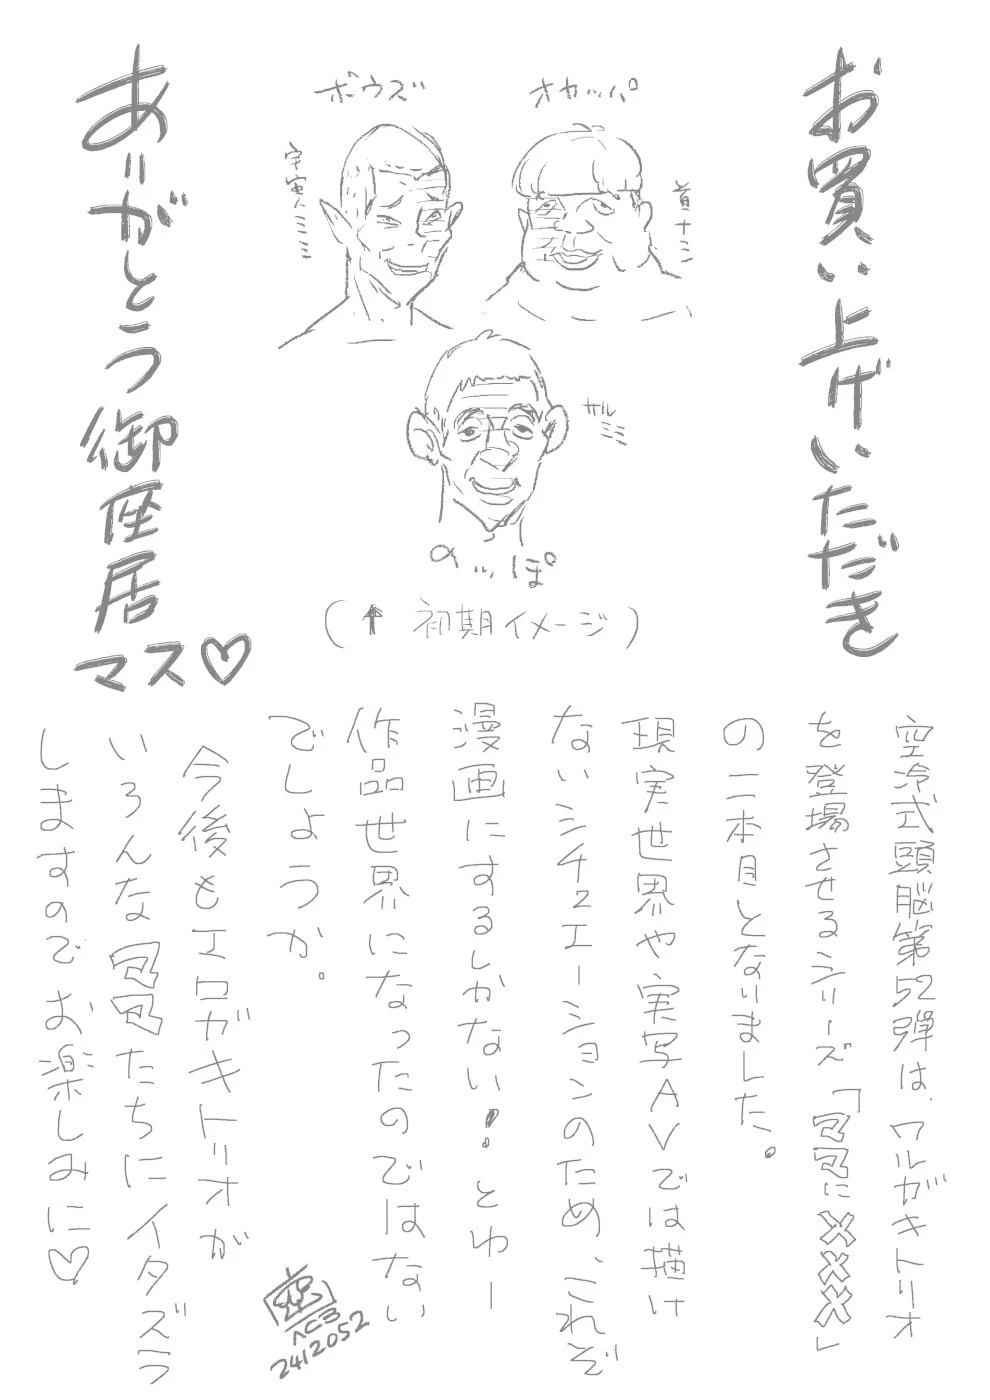 お買い上げいただき
ありがとう御座居マス♡
オカッパ
首ナシ
ボウズ
宇宙人ミミ
サルミミ
のっぽ
(↑初期イメージ)
空冷式頭脳第52弾は、ワルガキトリオ
を登場させるシリーズ「ママに×××」
の二本目となりました。
現実世界や実写AVでは描け
ないシチュエーションのため、これぞ
漫画にするしかない!とゆー
作品世界になったのではない
でしょうか。
今後もエロガキトリオが
いろんなママたちにイタズラ
しますのでお楽しみに♡
空
AC3
2412052